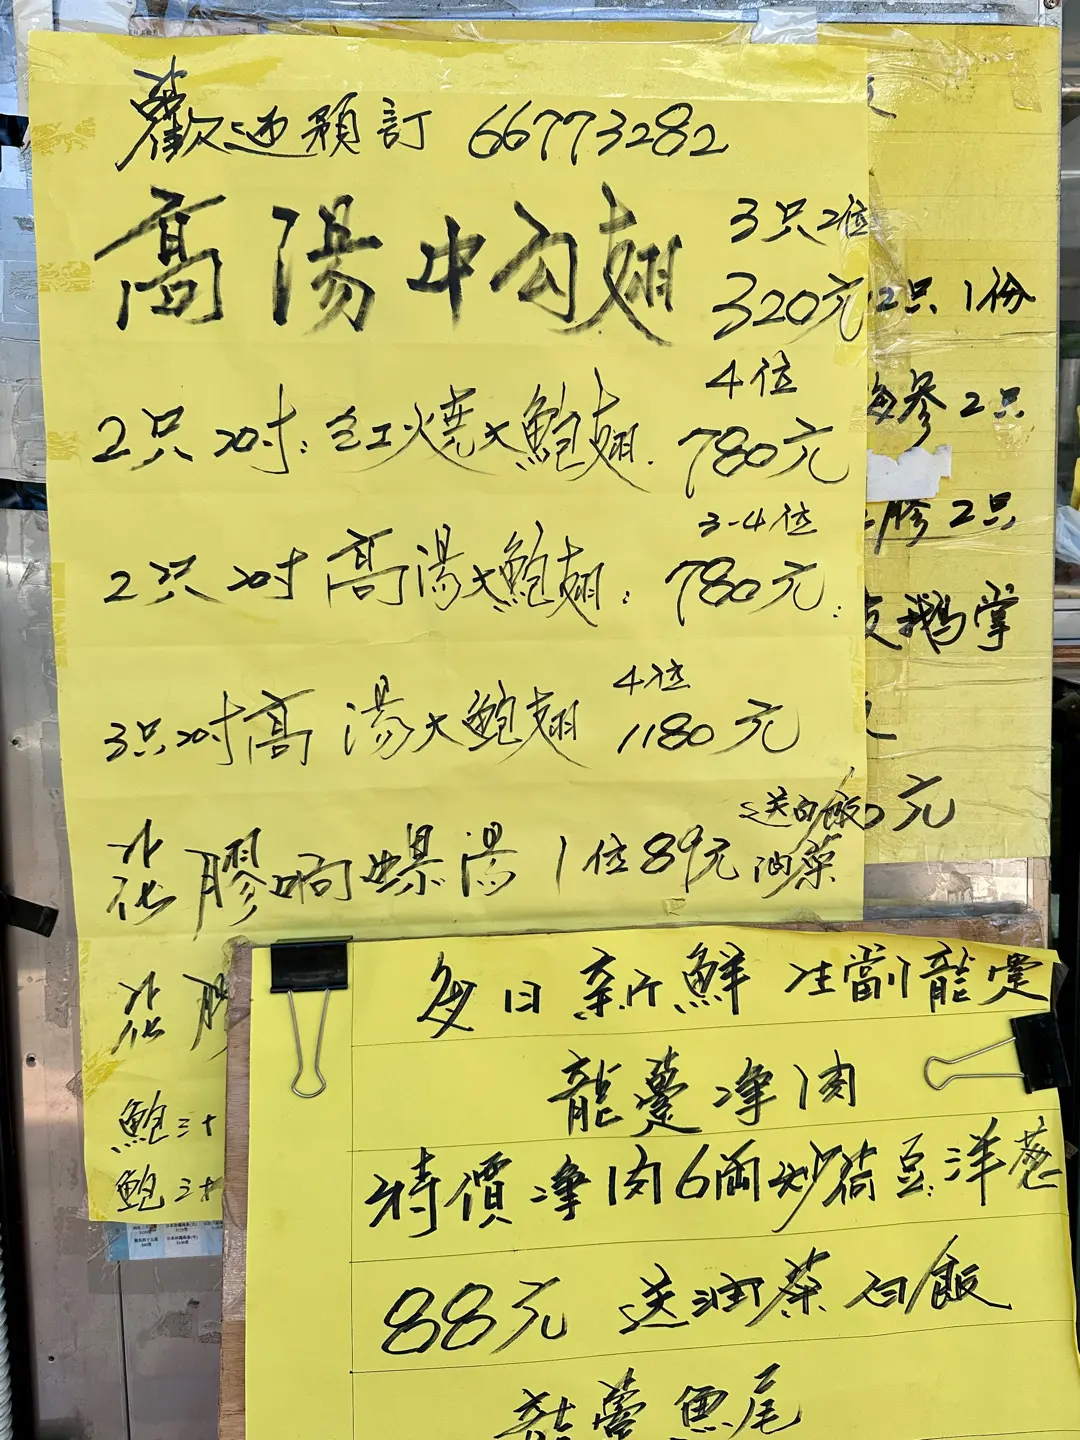 歡迎預訂 66773282
高湯中勾翅 3只2位 320元
2只 吋: 红燒大鮑翅. 4位 780元
2只 吋 高湯大鮑翅: 3-4位 780元:
3只 吋高湯大鮑翅 4位 1180元
花膠响螺湯 1位89元 送白飯 油菜
花膠
鮑三十
鮑三十
2只 1份
海參2只
膠2只
鵝掌
元
每日新鮮 生劏龍躉
龍躉凈肉
特價凈肉6両炒荷豆洋葱
88元 送油菜白飯
龍躉魚尾